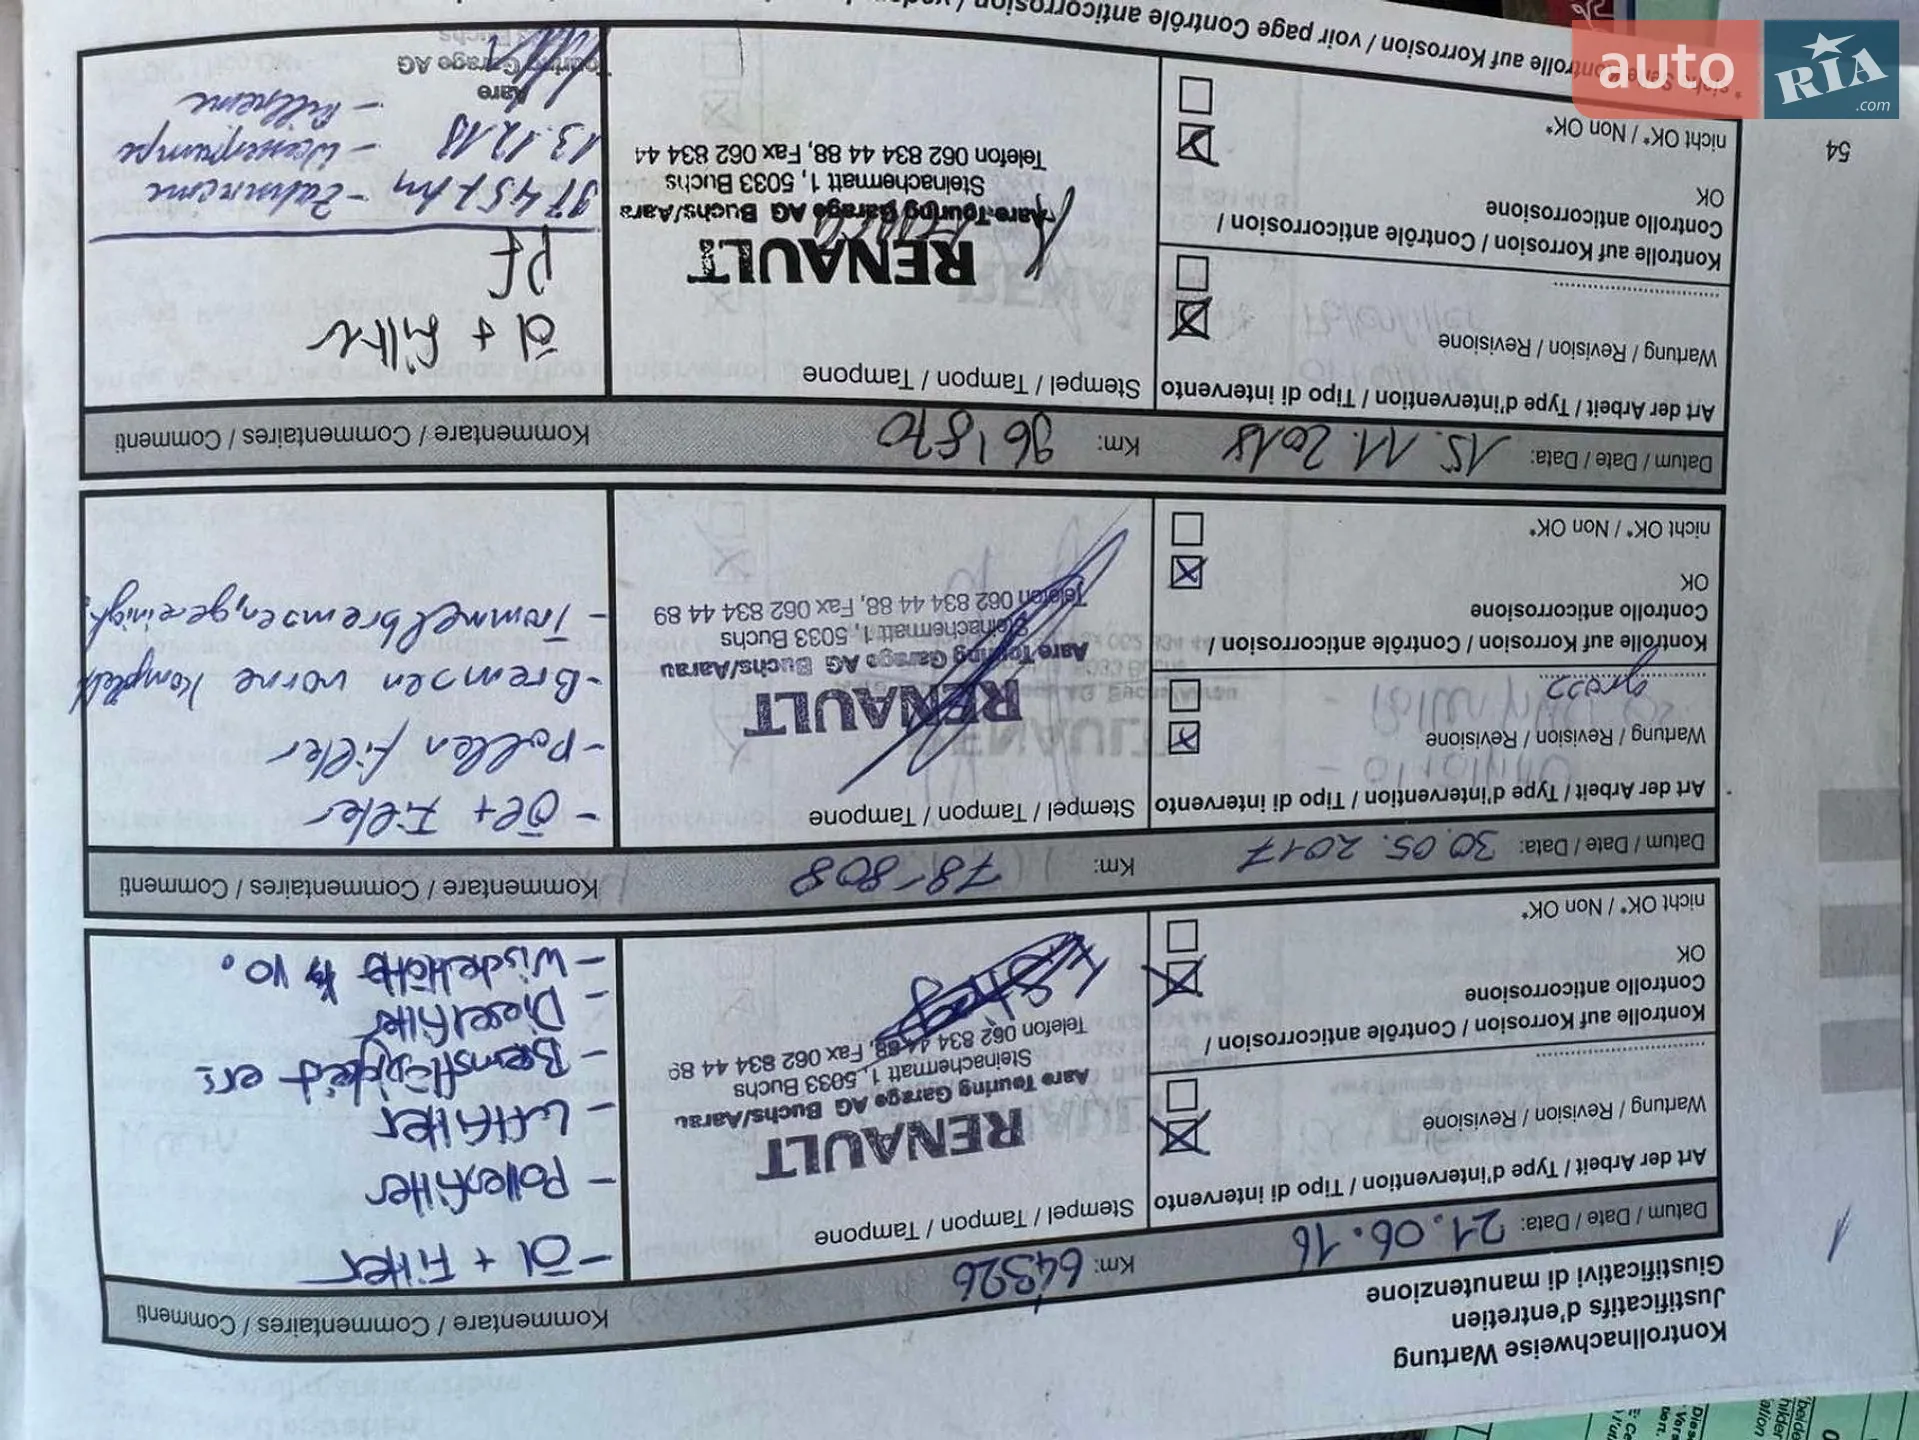 Kontrollnachweise Wartung
Justificatifs d'entretien
Giustificativi di manutenzione
Datum / Date / Data: 21.06.16 Km: 64'326 Kommentare / Commentaires / Commenti
Art der Arbeit / Type d'intervention / Tipo di intervento
Wartung / Revision / Revisione
Kontrolle auf Korrosion / Contrôle anticorrosion /
Controllo anticorrosione
OK
nicht OK* / Non OK*
Stempel / Tampon / Tampone
RENAULT
Aare Touring Garage AG Buchs/Aarau
Steinachermatt 1, 5033 Buchs
Telefon 062 834 44 88, Fax 062 834 44 89
- Öl + Filter
- Pollenfilter
- Luftfilter
- Bremsflüssigkeit ers.
- Dieselfilter
- Wischblätter vo.
Datum / Date / Data: 30.05.2017 Km: 78'808 Kommentare / Commentaires / Commenti
Art der Arbeit / Type d'intervention / Tipo di intervento
Wartung / Revision / Revisione
gross
Kontrolle auf Korrosion / Contrôle anticorrosion /
Controllo anticorrosione
OK
nicht OK* / Non OK*
Stempel / Tampon / Tampone
RENAULT
Aare Touring Garage AG Buchs/Aarau
Steinachermatt 1, 5033 Buchs
Telefon 062 834 44 88, Fax 062 834 44 89
- Öl + Filter
- Pollen filter
- Bremsen vorne komplett
- Trommelbremsen gereinigt.
Datum / Date / Data: 15.11.2018 Km: 96'870 Kommentare / Commentaires / Commenti
Art der Arbeit / Type d'intervention / Tipo di intervento
Wartung / Revision / Revisione
Kontrolle auf Korrosion / Contrôle anticorrosion /
Controllo anticorrosione
OK
nicht OK* / Non OK*
Stempel / Tampon / Tampone
RENAULT
Aare Touring Garage AG Buchs/Aara
Steinachermatt 1, 5033 Buchs
Telefon 062 834 44 88, Fax 062 834 44
Öl + Filter
PF
97457 km - Zahnriemen
13.12.18 - Wasserpumpe
Aare
Touring Garage AG
54
auto RIA .com